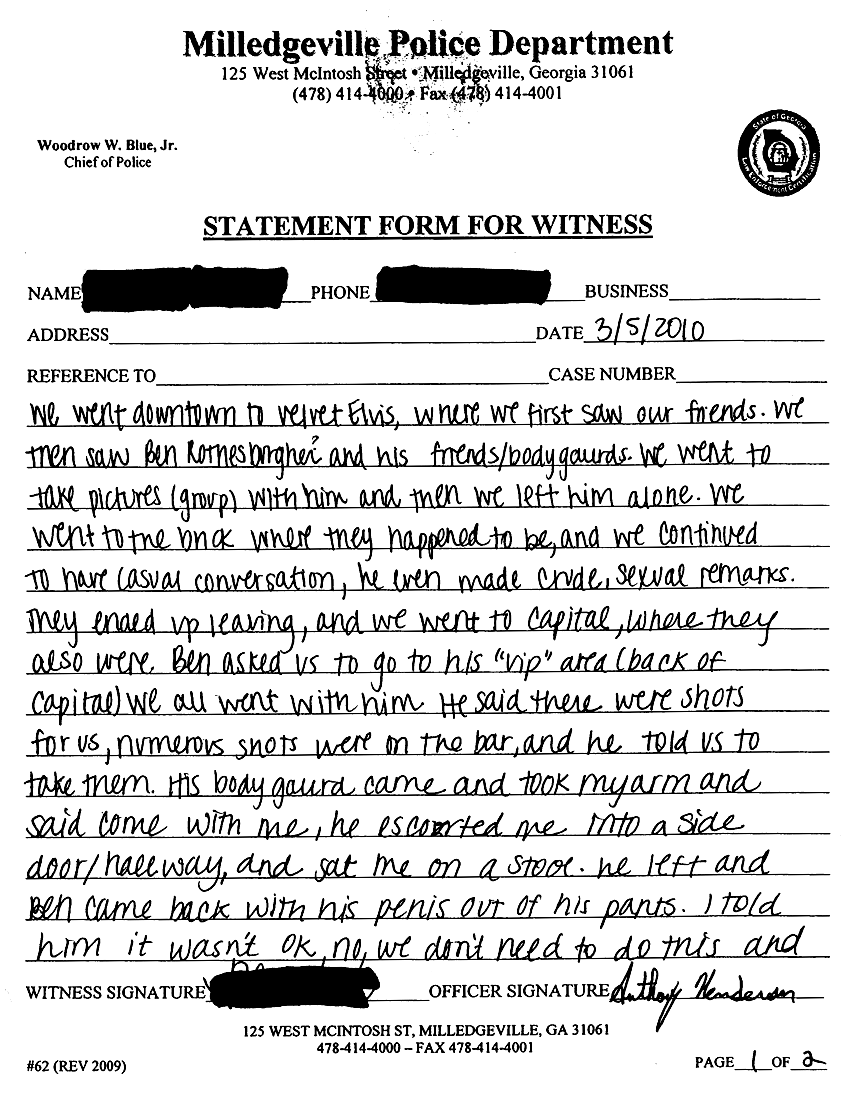 Milledgeville Police Department
125 West McIntosh Street • Milledgeville, Georgia 31061
(478) 414-4000 • Fax (478) 414-4001
Woodrow W. Blue, Jr.
Chief of Police
State of Georgia
Law Enforcement Certification
STATEMENT FORM FOR WITNESS
NAME PHONE BUSINESS
ADDRESS DATE 3/5/2010
REFERENCE TO CASE NUMBER
We went downtown to velvet Elvis, where we first saw our friends. We
then saw Ben Rothesburgher? and his friends/bodygaurds. We went to
take pictures (group) with him and then we left him alone. We
went to the back where they happened to be, and we continued
to have casual conversation, he even made crude, sexual remarks.
They ended up leaving, and we went to Capital, where they
also were. Ben asked us to go to his "vip" area (back of
Capital) We all went with him. He said there were shots
for us, numerous shots were on the bar, and he told us to
take them. His bodygaurd came and took my arm and
said come with me, he escorted me into a side
door/hallway, and sat me on a stool. he left and
Ben came back with his penis out of his pants. I told
him it wasn't OK, no, we don't need to do this and
WITNESS SIGNATURE OFFICER SIGNATURE Anthony Henderson
125 WEST MCINTOSH ST, MILLEDGEVILLE, GA 31061
478-414-4000 – FAX 478-414-4001
#62 (REV 2009) PAGE 1 OF 2